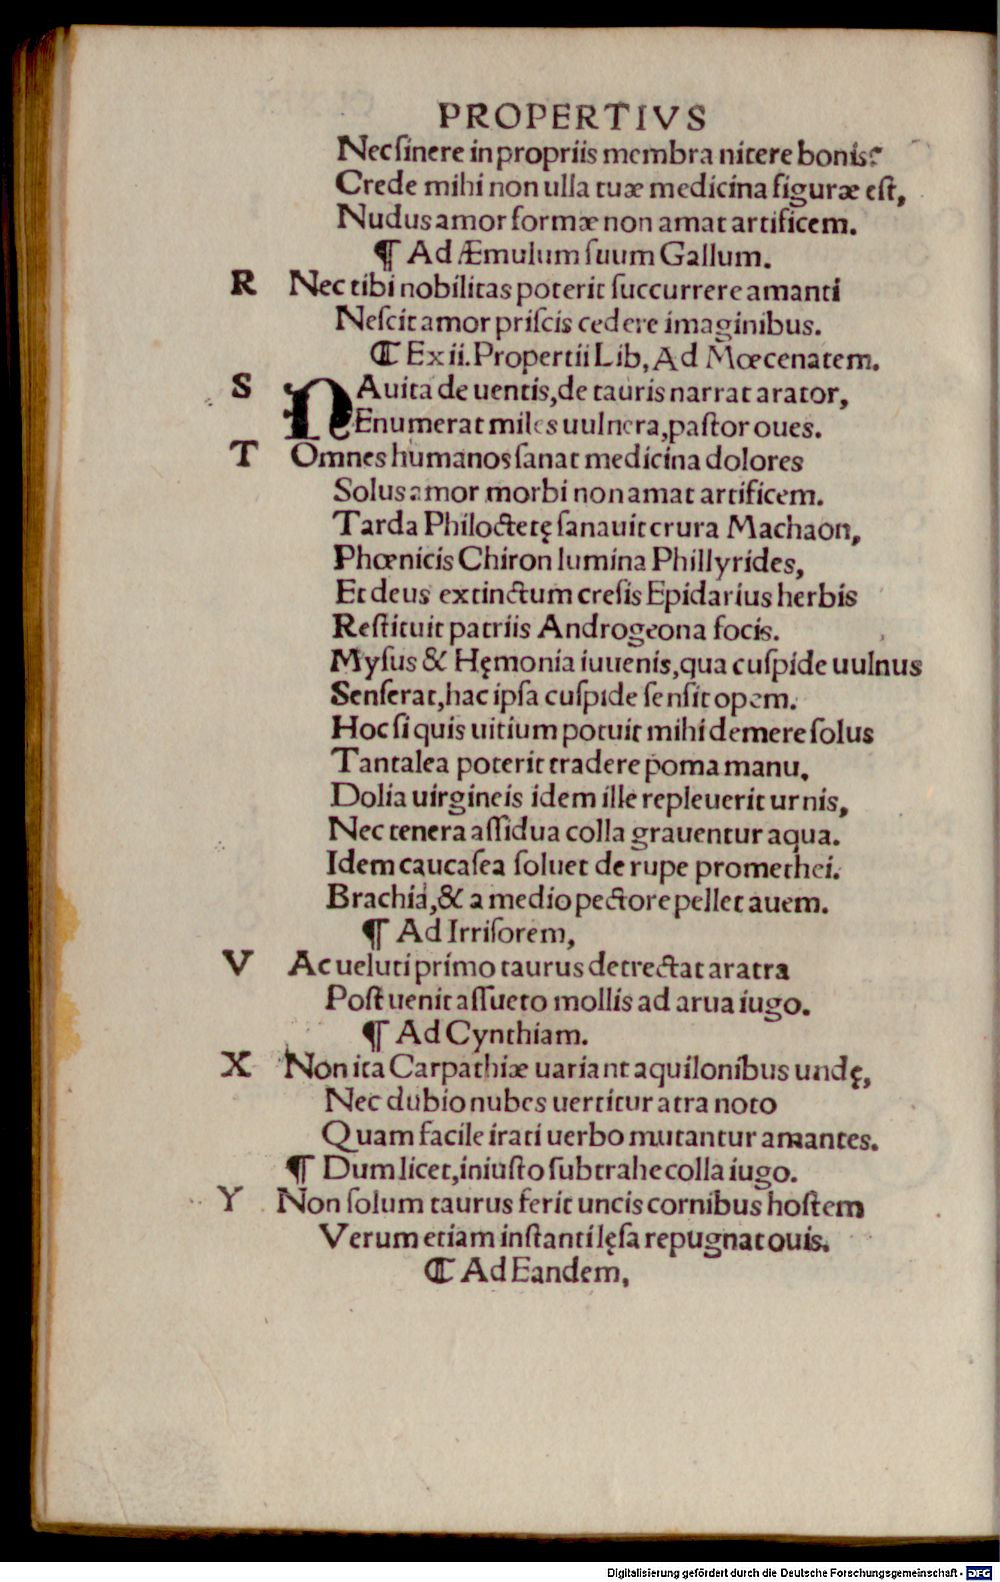 PROPERTIVS
Nec ſinere in propriis membra nitere bonis?
Crede mihi non ulla tuæ medicina figuræ eſt,
Nudus amor formæ non amat artificem.
¶ Ad Æmulum ſuum Gallum.
R Nec tibi nobilitas poterit ſuccurrere amanti
Neſcit amor priſcis cedere imaginibus.
¶ Ex ii. Propertii Lib, Ad Mœcenatem.
S NAuita de uentis, de tauris narrat arator,
Enumerat miles uulnera, paſtor oues.
T Omnes humanos ſanat medicina dolores
Solus amor morbi non amat artificem.
Tarda Philoctetę ſanauit crura Machaon,
Phœnicis Chiron lumina Phillyrides,
Et deus extinctum creſis Epidarius herbis
Reſtituit patriis Androgeona focis.
Myſus & Hęmonia iuuenis, qua cuſpide uulnus
Senſerat, hac ipſa cuſpide ſenſit opem.
Hoc ſi quis uitium potuit mihi demere ſolus
Tantalea poterit tradere poma manu.
Dolia uirgineis idem ille repleuerit urnis,
Nec tenera aſſidua colla grauentur aqua.
Idem caucaſea ſoluet de rupe promethei.
Brachia, & a medio pectore pellet auem.
¶ Ad Irriſorem,
V Ac ueluti primo taurus detrectat aratra
Poſt uenit aſſueto mollis ad arua iugo.
¶ Ad Cynthiam.
X Non ita Carpathiæ uariant aquilonibus undę,
Nec dubio nubes uertitur atra noto
Quam facile irati uerbo mutantur amantes.
¶ Dum licet, iniuſto ſubtrahe colla iugo.
Y Non ſolum taurus ferit uncis cornibus hoſtem
Verum etiam inſtanti lęſa repugnat ouis.
¶ Ad Eandem,
Digitalisierung gefördert durch die Deutsche Forschungsgemeinschaft - DFG